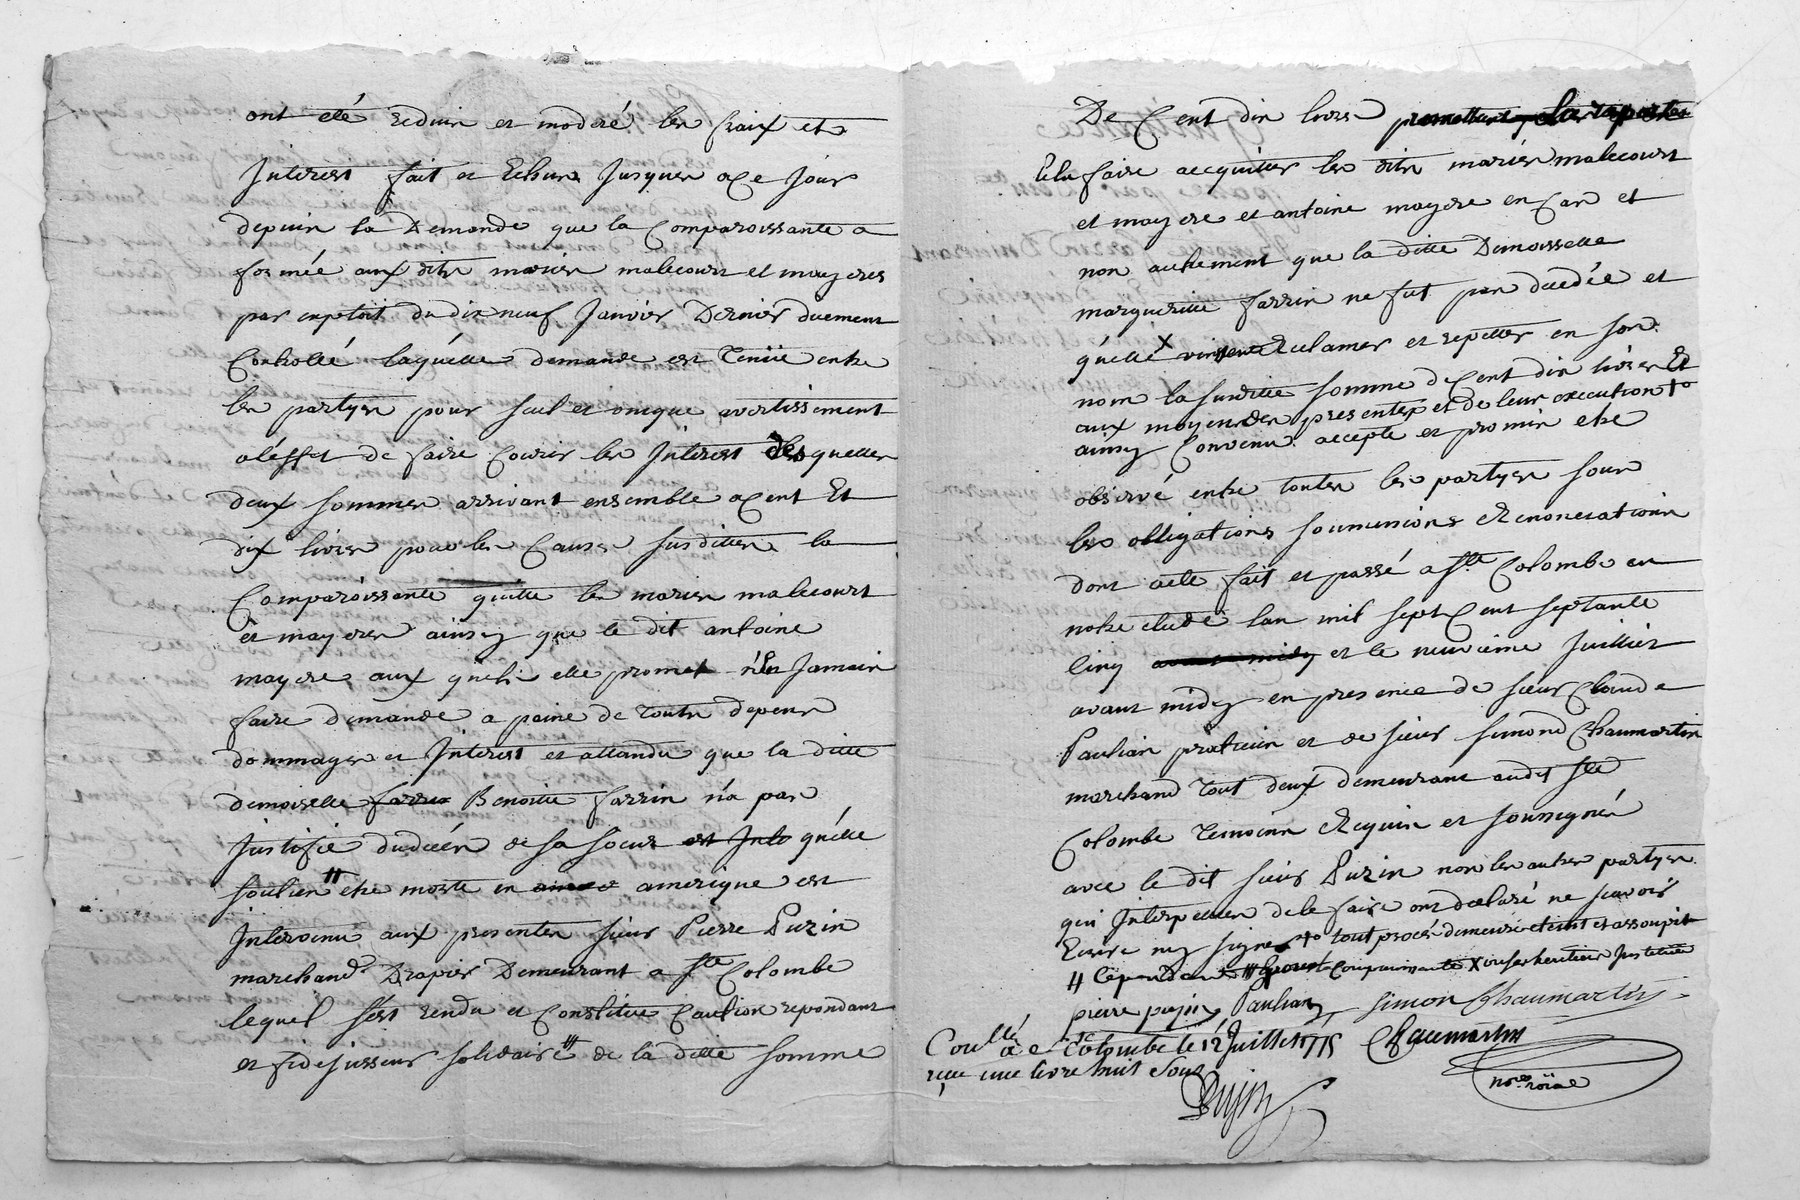 ont eté reduin et moderé les fraix et
Interest fait et Echuns Jusquer a ce Jour
depuin la Demande que la Comparoissante a
formée aux dits mariés malecourt et mayeres
par exploit du dix neuf Janvier Dernier duement
Controllé laquelle demande est Tenüe entre
les partyes pour seul et unique avertissement
a léffet de faire Courir les Interest desquelles
deux sommes arrivant ensemble a cent Et
dix livres pour les Causes susdittes la
Comparoissante quitte les mariés malecourt
et mayeres ainsy que le dit antoine
mayere aux quels elle promet n'En Jamais
faire demande a peine de touts depens
dommages et Interest et attandu que la ditte
demoiselle Benoitte farrin n'a pas
Justifié du décés de sa soeur qu'elle
soutien " etre morte en amerique est
Intervenu aux presentes sieur Pierre Puzin
marchand Drapier Demeurant a Ste Colombe
lequel s'est rendu et Constitué Caution repondant
et fidejusseur solidaire "' de la ditte somme
De Cent dix livres promettant
Et la faire acquitter les dits mariés malecourt
et mayere et antoine mayere en Cas et
non autrement que la ditte Demoisselle
margueritte farrin ne fut pas dècédée et
qu'elle X Reclamer et repetter en son
nom la susditte somme de Cent dix livres Et
aux moyen des presentes et de leur execution +o
ainsy Convenu accepté et promis etre
observé entre toutes les partyes sous
les obligations soumissions & Renonciations
dont acte fait et passé a Ste Colombe en
notre etude lan mil sept Cent septante
Cinq et le neuvième Juillet
avant midy en presence de sieur Claude
Paulian praticien et de sieur simond Chaumartin
marchand tout deux demeurant audit Ste
Colombe temoins Requis et soussignés
avec le dit sieur Puzin non les autres partyes
qui Interpellés de le faire ont declaré ne sçavoir
Ecrire ny signer +o tout procés demeure eteint et assoupit
" cependant "' Comparoissante X ou ses heritiers Institué
pierre puzin Paulian simon Chaumartin
Conllé a Ste Colombe le 12 Juillet 1775 Chaumartin
reçu une livre huit sous
nore roïal
Pujin